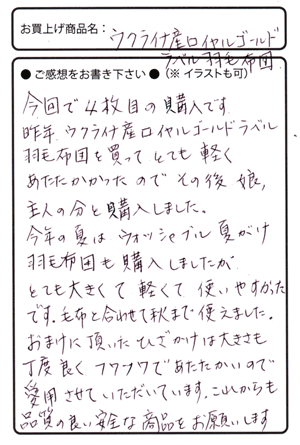 お買上げ商品名：ウクライナ産ロイヤルゴールド
ラベル羽毛布団
● ご感想をお書き下さい ●（※ イラストも可）
今回で4枚目の購入です
昨年、ウクライナ産ロイヤルゴールドラベル
羽毛布団を買って とても 軽く
あたたかかったので その後 娘、
主人の分と購入しました。
今年の夏は ウォッシャブル 夏がけ
羽毛布団も 購入しましたが
とても大きくて 軽くて 使いやすかった
です。毛布と合わせて秋まで使えました。
おまけに 頂いた ひざかけは大きさも
丁度良く フワフワであたたかいので
愛用させていただいています。これからも
品質の良い安全な商品をお願いします